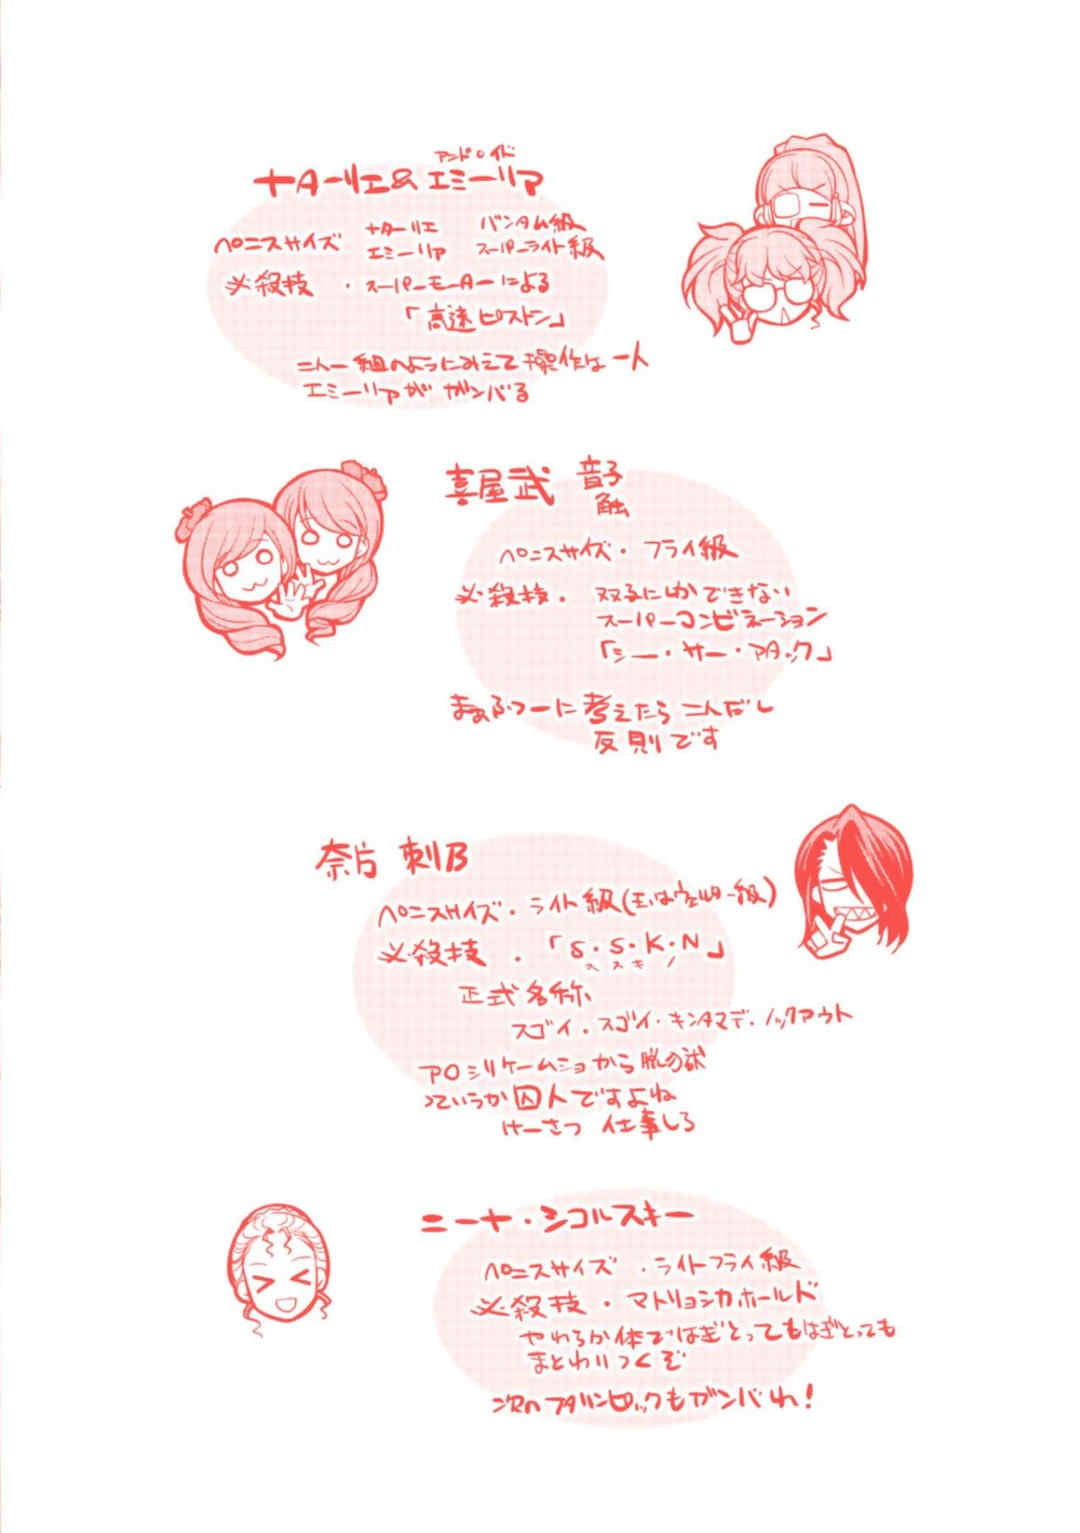 アンドロイド
ナターリエ&エミーリア
ペニスサイズ ナターリエ バンタム級
エミーリア スーパーライト級
必殺技・スーパーモーターによる
「高速ピストン」
二人一組のようにみえて操作は一人
エミーリアがガンバる
喜屋武 音子
触
ペニスサイズ・フライ級
必殺技・双子にしかできない
スーパーコンビネーション
「シー・サー・アタック」
まぁふつーに考えたら二人だし
反則です
奈片 刺乃
ペニスサイズ・ライト級(玉はウェルター級)
必殺技・「S・S・K・N」
ス ス キ ノ
正式名称
スゴイ・スゴイ・キンタマデ・ノックアウト
アロシリケームショから脱の獄
っていうか囚人ですよね
けーさつ 仕事しろ
ニーナ・シコルスキー
ペニスサイズ・ライトフライ級
必殺技・マトリョシカホールド
やわらか体ではぎとってもはぎとっても
まとわりつくぞ
次のフタリンピックもガンバれ!